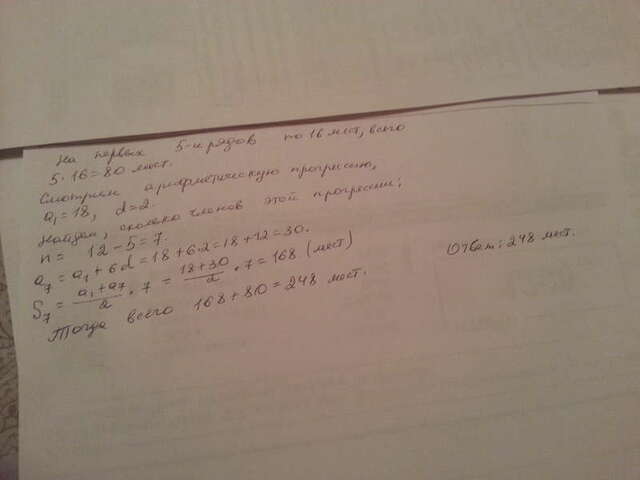 На первых 5-и рядов по 16 мест, всего
5·16=80 мест.
Смотрим арифметическую прогрессию,
a₁=18, d=2.
Найдем, сколько членов этой прогрессии;
n = 12-5=7.
a₇ = a₁+6d=18+6·2=18+12=30.
S₇ = (a₁+a₇)/2 · 7 = (18+30)/2 · 7 = 168 (мест)
Тогда всего 168+80=248 мест.
Ответ: 248 мест.